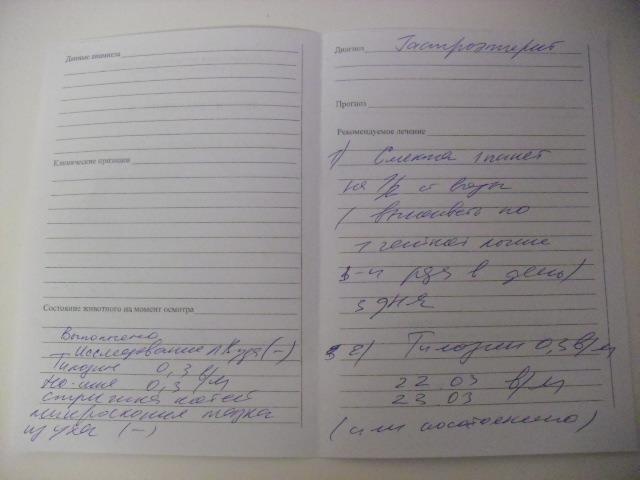 Данные анамнеза
Клинические признаки
Состояние животного на момент осмотра
Выполнено
Исследование (-)
Тилозин 0,3 в/м
Но-шпа 0,3
стрижка когтей
микроскопия мазка
из уха (-)
Диагноз Гастроэнтерит
Прогноз
Рекомендуемое лечение
1) Смекта 1 пакет
на 1/2 ст воды
( выпаивать по
1 чайной ложке
3-и раза в день)
3 дня
2) Тилозин 0,3 в/м
22 03 в/м
23 03
(или